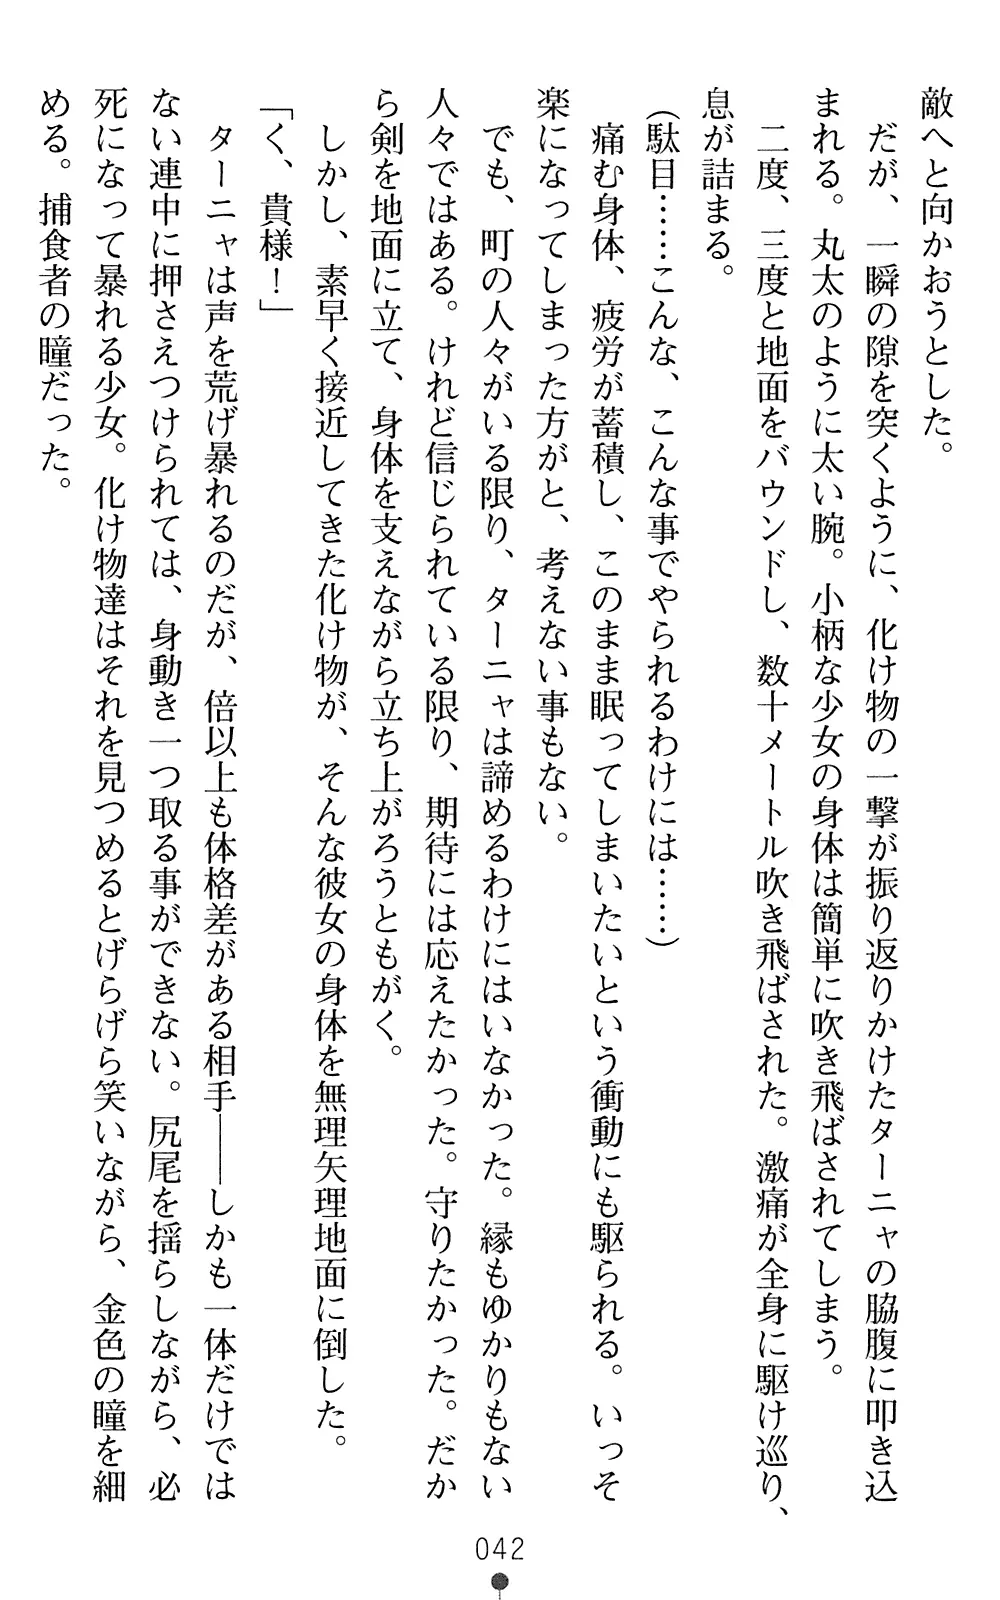 敵へと向かおうとした。
　だが、一瞬の隙を突くように、化け物の一撃が振り返りかけたターニャの脇腹に叩き込
まれる。丸太のように太い腕。小柄な少女の身体は簡単に吹き飛ばされてしまう。
　二度、三度と地面をバウンドし、数十メートル吹き飛ばされた。激痛が全身に駆け巡り、
息が詰まる。
（駄目……こんな、こんな事でやられるわけには……）
　痛む身体、疲労が蓄積し、このまま眠ってしまいたいという衝動にも駆られる。いっそ
楽になってしまった方がと、考えない事もない。
　でも、町の人々がいる限り、ターニャは諦めるわけにはいなかった。縁もゆかりもない
人々ではある。けれど信じられている限り、期待には応えたかった。守りたかった。だか
ら剣を地面に立て、身体を支えながら立ち上がろうともがく。
　しかし、素早く接近してきた化け物が、そんな彼女の身体を無理矢理地面に倒した。
「く、貴様！」
　ターニャは声を荒げ暴れるのだが、倍以上も体格差がある相手――しかも一体だけでは
ない連中に押さえつけられては、身動き一つ取る事ができない。尻尾を揺らしながら、必
死になって暴れる少女。化け物達はそれを見つめるとげらげら笑いながら、金色の瞳を細
める。捕食者の瞳だった。
042